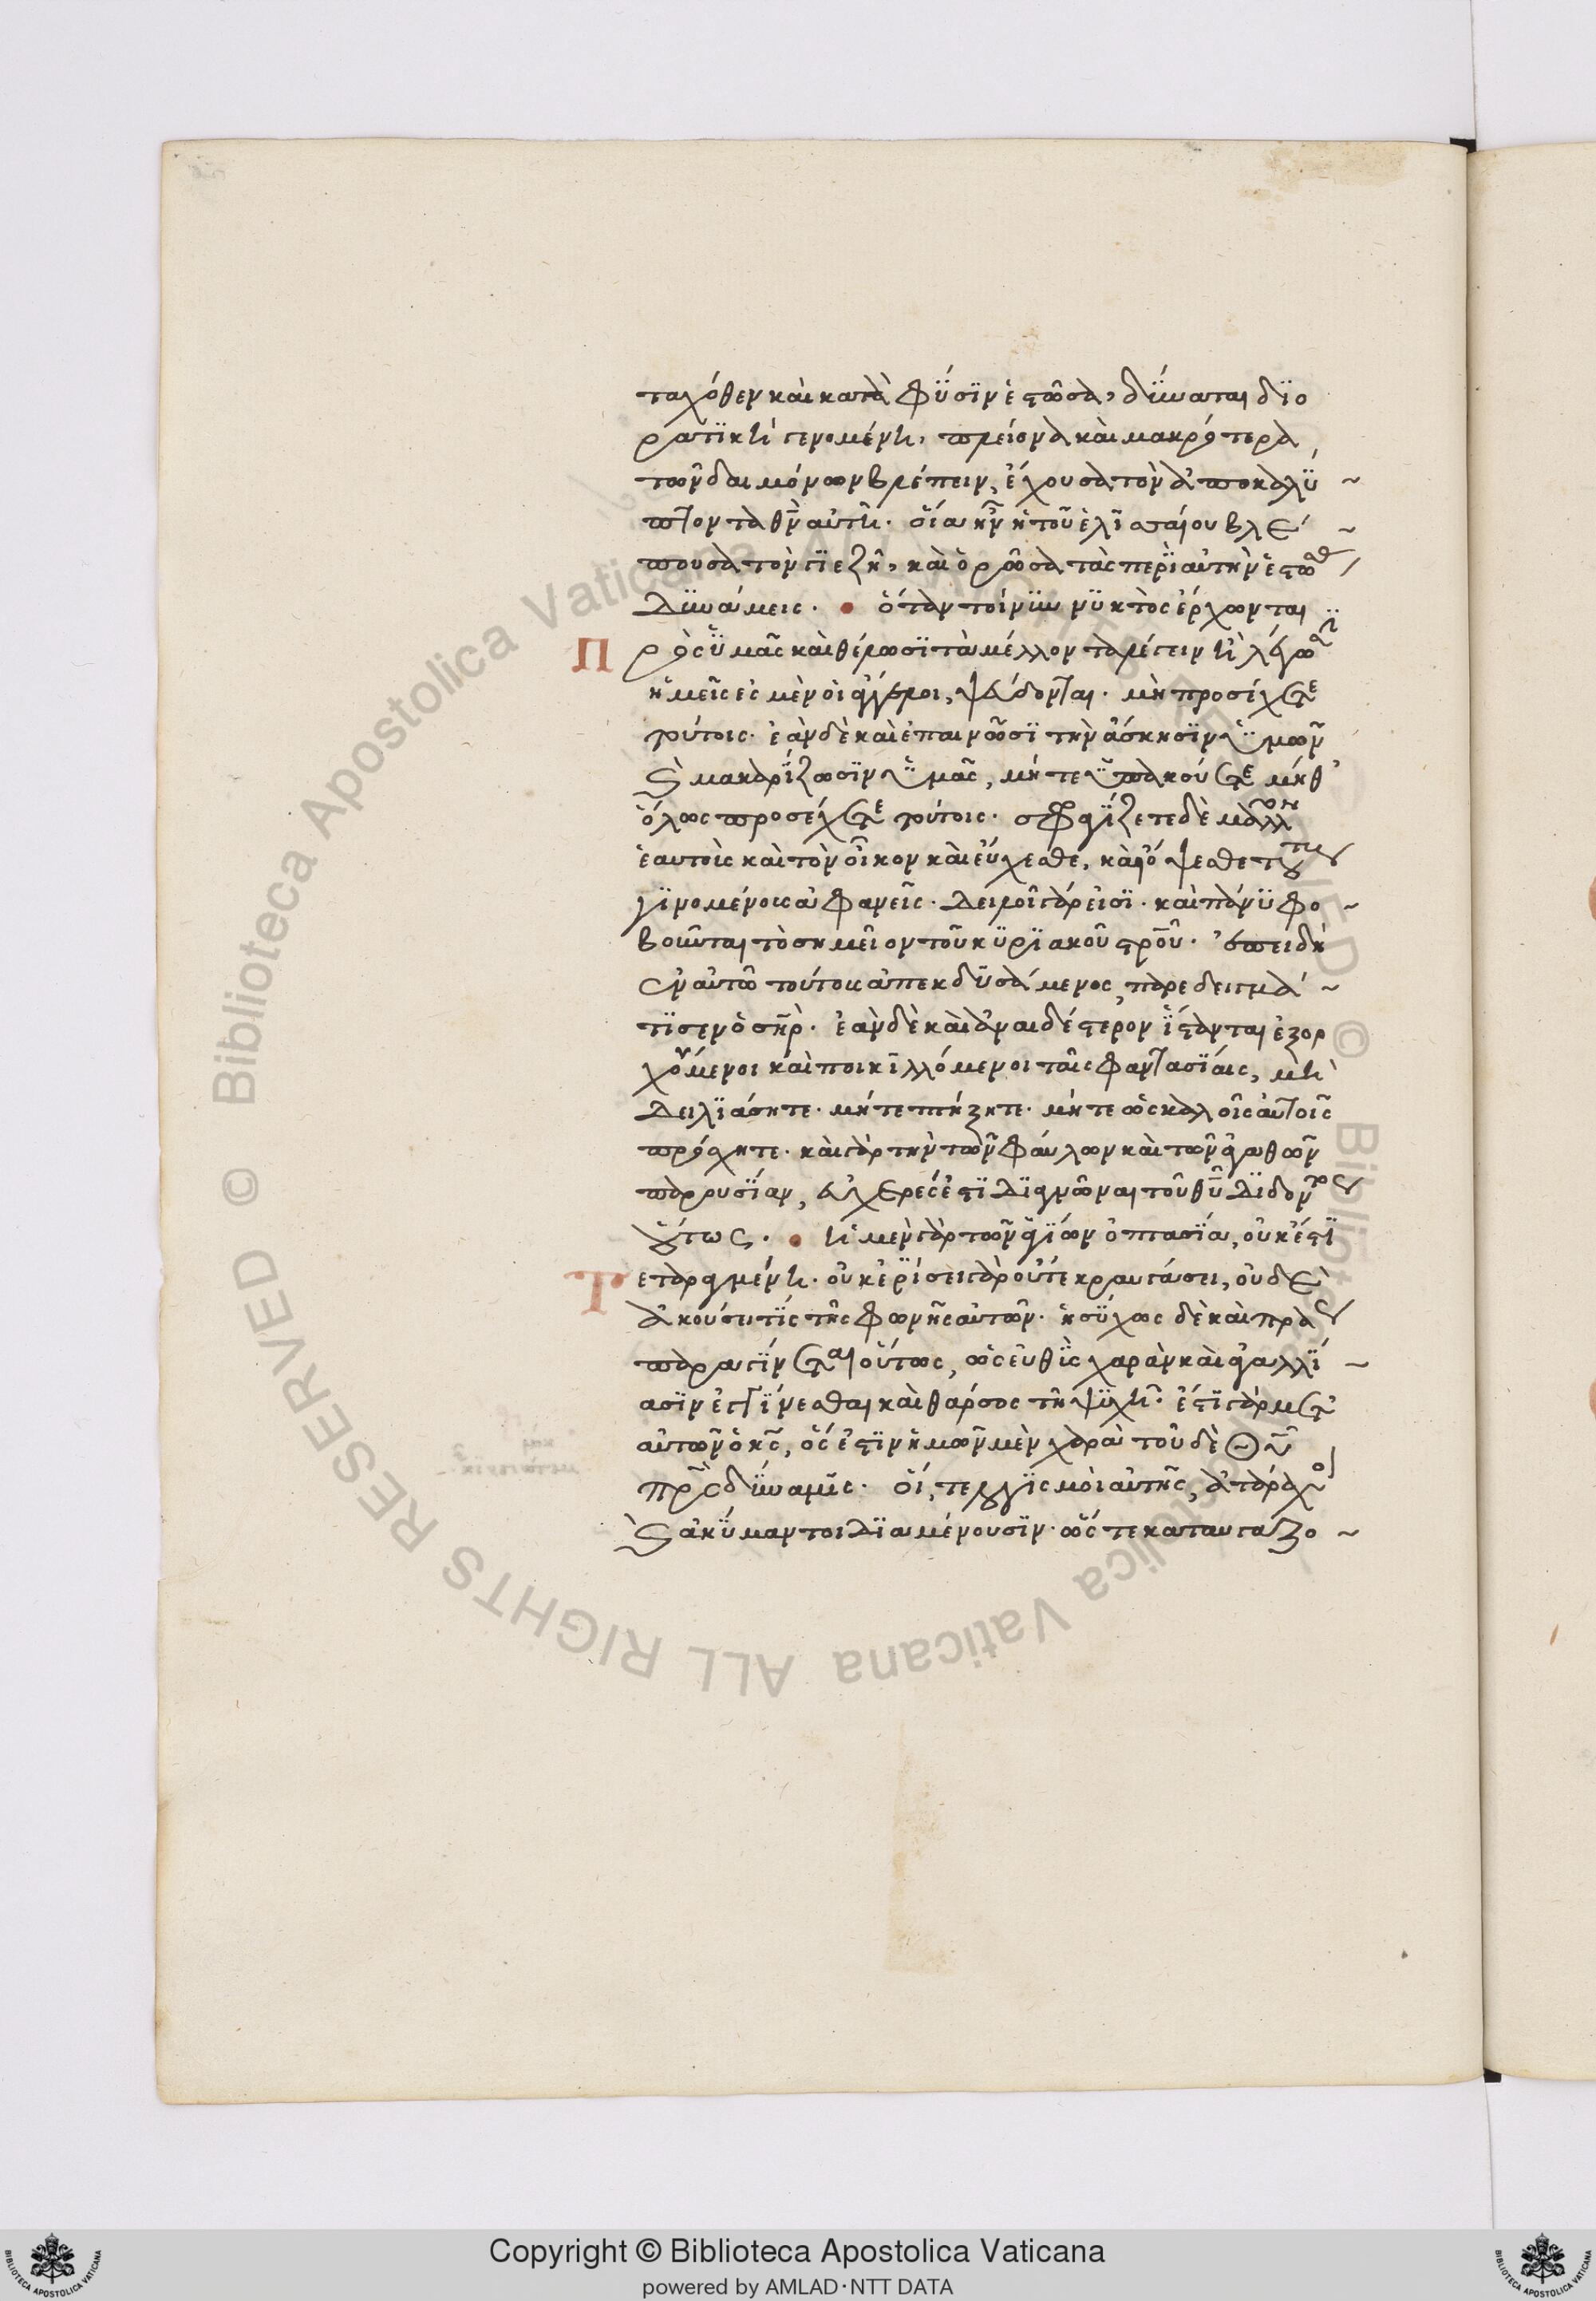 ταχόθεν καὶ κατὰ φΰσϊν ἑστῶσα, δΰναται δϊο
ρατϊκὴ γενομένη, πλείονα καὶ μακρότερα
τῶν δαιμόνων βλέπειν, ἔχουσα τὸν ἀποκαλΰ
πτοντα θν αὐτῆ. οἵα ἦν ἡ τοῦ ἐλϊσσαίου βλέ
πουσα τὸν γϊεζῆ, καὶ ὁρῶσα τὰς περὶ αὐτὴν ἑστώσ
δϋνάμεις. ὅταν τοίνϋν νϋκτὸς ἔρχωνται
Πρὸς ϋμᾶς καὶ θέλωσϊ τὰ μέλλοντα λέγειν ἢ λέγωσϊ
ἡμεῖς ἐσμὲν οἱ ἄγγελοι, ψεύδονται. μὴ προσέχετε
τούτοις. ἐὰν δὲ καὶ ἐπαινῶσϊ τὴν ἄσκησϊν ϋμῶν
καὶ μακαρΐζωσϊν ϋμᾶς, μήτε ϋπακούετε μήθ'
ὅλως προσέχετε τούτοις. σφραγΐζετε δὲ μᾶλλον
ἑαυτοὺς καὶ τὸν οἶκον καὶ εὔχεσθε, καὶ ὄψεσθε τούτους
γϊνομένους ἀφανεῖς. δειλοὶ γάρ εἰσϊ. καὶ πάνϋ φο
βοῦνται τὸ σημεῖον τοῦ κϋρϊακοῦ στροῦ. ἐπειδὴ
ἐν αὐτῶ τούτους ἀπεκδϋσάμενος, παρεδειγμά
τϊσεν ὁ σηρ. ἐὰν δὲ καὶ ἀναιδέστερον ΐστανται ἐξορ
χούμενοι καὶ ποικϊλλόμενοι ταῖς φαντασϊαις, μὴ
δειλϊάσητε. μήτε πήξητε. μήτε ὡς καλοῖς αὐτοῖς
πρόσχητε. καὶ γὰρ τὴν τῶν φαύλων καὶ τῶν ἀγαθῶν
παρουσΐαν, εὐχερές ἐστϊ δϊαγνῶναι τοῦ θυ δϊδοντος
οὕτως. ἡ μὲν γὰρ τῶν ἁγΐων ὀπτασΐα, οὐκ ἔστϊ
Τεταραγμένη. οὐκ ἐρΐσει γὰρ οὔτε κραυγάσει, οὐδὲ
ἀκούσει τϊς τῆς φωνῆς αὐτῶν. ἡσΰχως δὲ καὶ πράως
παραγΐνεται οὕτως, ὡς εὐθϋς χαρὰν καὶ ἀγαλλΐ
ασϊν ἐγγΐνεσθαι καὶ θάρσος τῆ ψϋχῆ. ἔστϊ γὰρ μετ'
αὐτῶν ὁ κς, ὅς ἐστϊν ἡμῶν μὲν χαρὰ τοῦ δὲ Θυ
πρς δΰναμϊς. οἵ, τε λογϊσμοὶ αὐτῆς, ἀτάραχοι
καὶ ἀκΰμαντοι δϊαμένουσϊν. ὥστε καταυγαζο